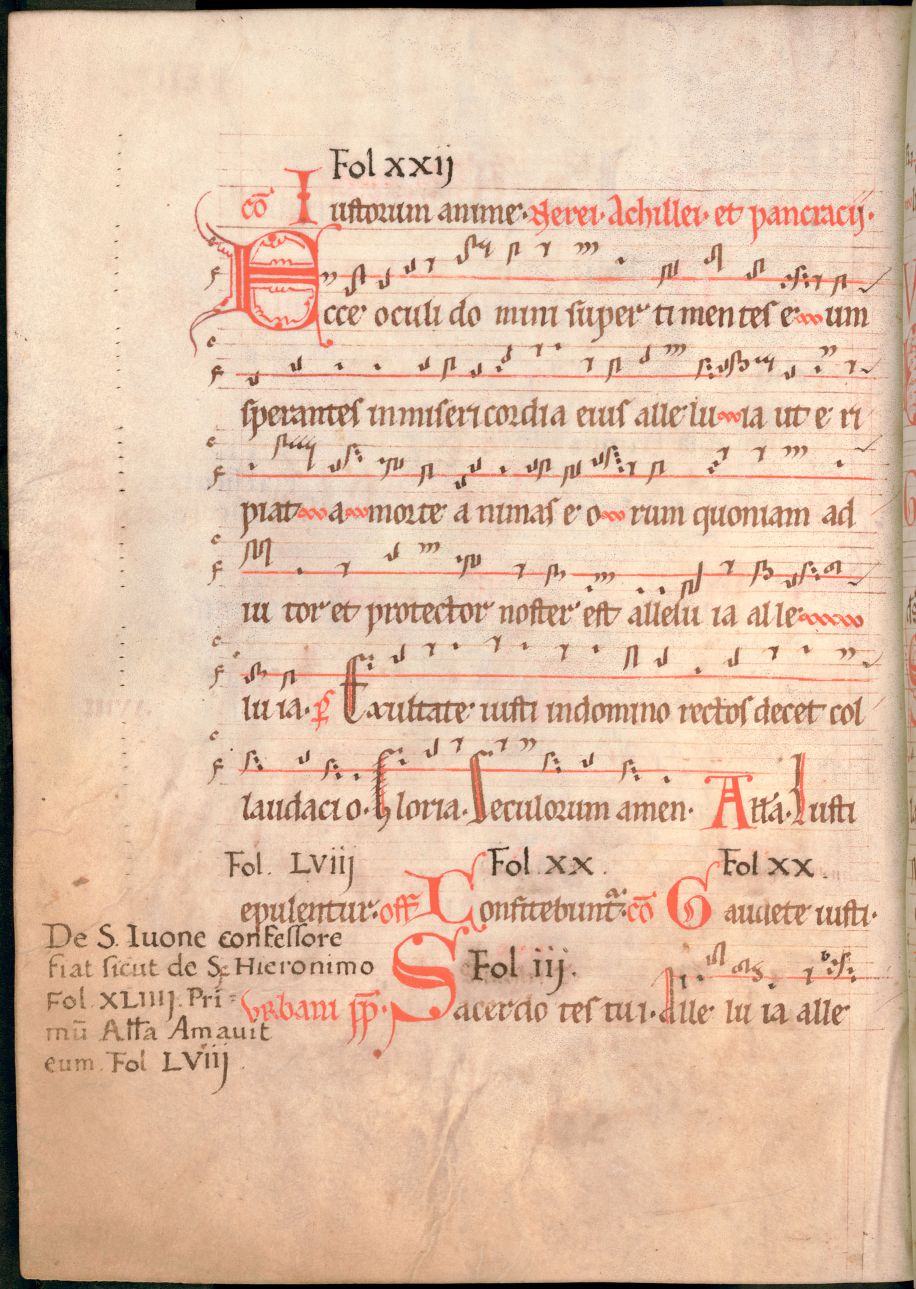 Fol xxij
cō Iustorum anime· Nerei· Achillei· et pancracij·
Ecce oculi do mini super ti mentes e um
sperantes in miseri cordia eius alle lu ia ut e ri
piat a morte a nimas e o rum quoniam ad
iu tor et protector noster est allelu ia al le
lu ia· p̄s Exultate iusti in domino rectos decet col
laudaci o· Gloria· Seculorum amen· Alła· Iusti
Fol. LVIIJ Fol xx. Fol xx.
epulentur· off Confitebunt· cō Gaudete iusti·
De S. Iuone confessore
fiat sicut de S. Hieronimo Fol iij.
Fol XLIIIJ. Pri=
Urbani pp· Sacerdo tes tu i· Alle lu ia alle
mū Alła Amauit
eum. Fol LVIIJ.